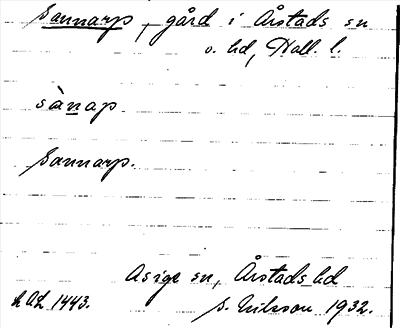 Sannarp, gård i Årstads sn
o. hd, Hall. l.
sànap
Sannarp.
Asige sn, Årstads hd
LAL 1443. S. Nilsson 1932.